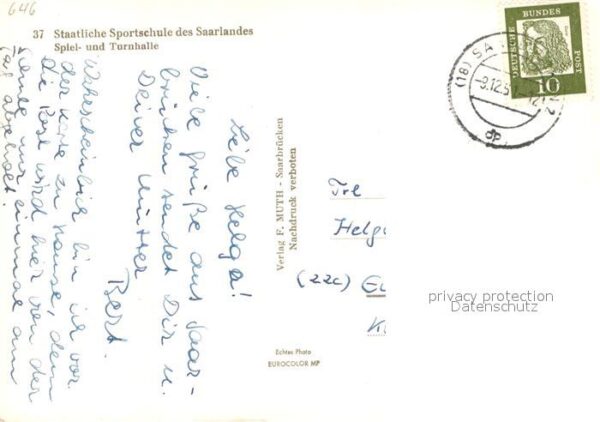 646
37 Staatliche Sportschule des Saarlandes
Spiel- und Turnhalle
Liebe Helga!
Viele Grüße aus Saar-
brücken sendet Dir u.
Deiner Mutter
Bert.
Wahrscheinlich bin ich vor
der Karte zu Hause, denn
die Post wird hier von der
Schule nur einmal am
Tag abgeholt.
Verlag F. MUTH - Saarbrücken
Nachdruck verboten
Echtes Photo
EUROCOLOR MP
DEUTSCHE
BUNDES
POST
10
(18) SA
-9.12.
Helg
(22c)
privacy protection
Datenschutz